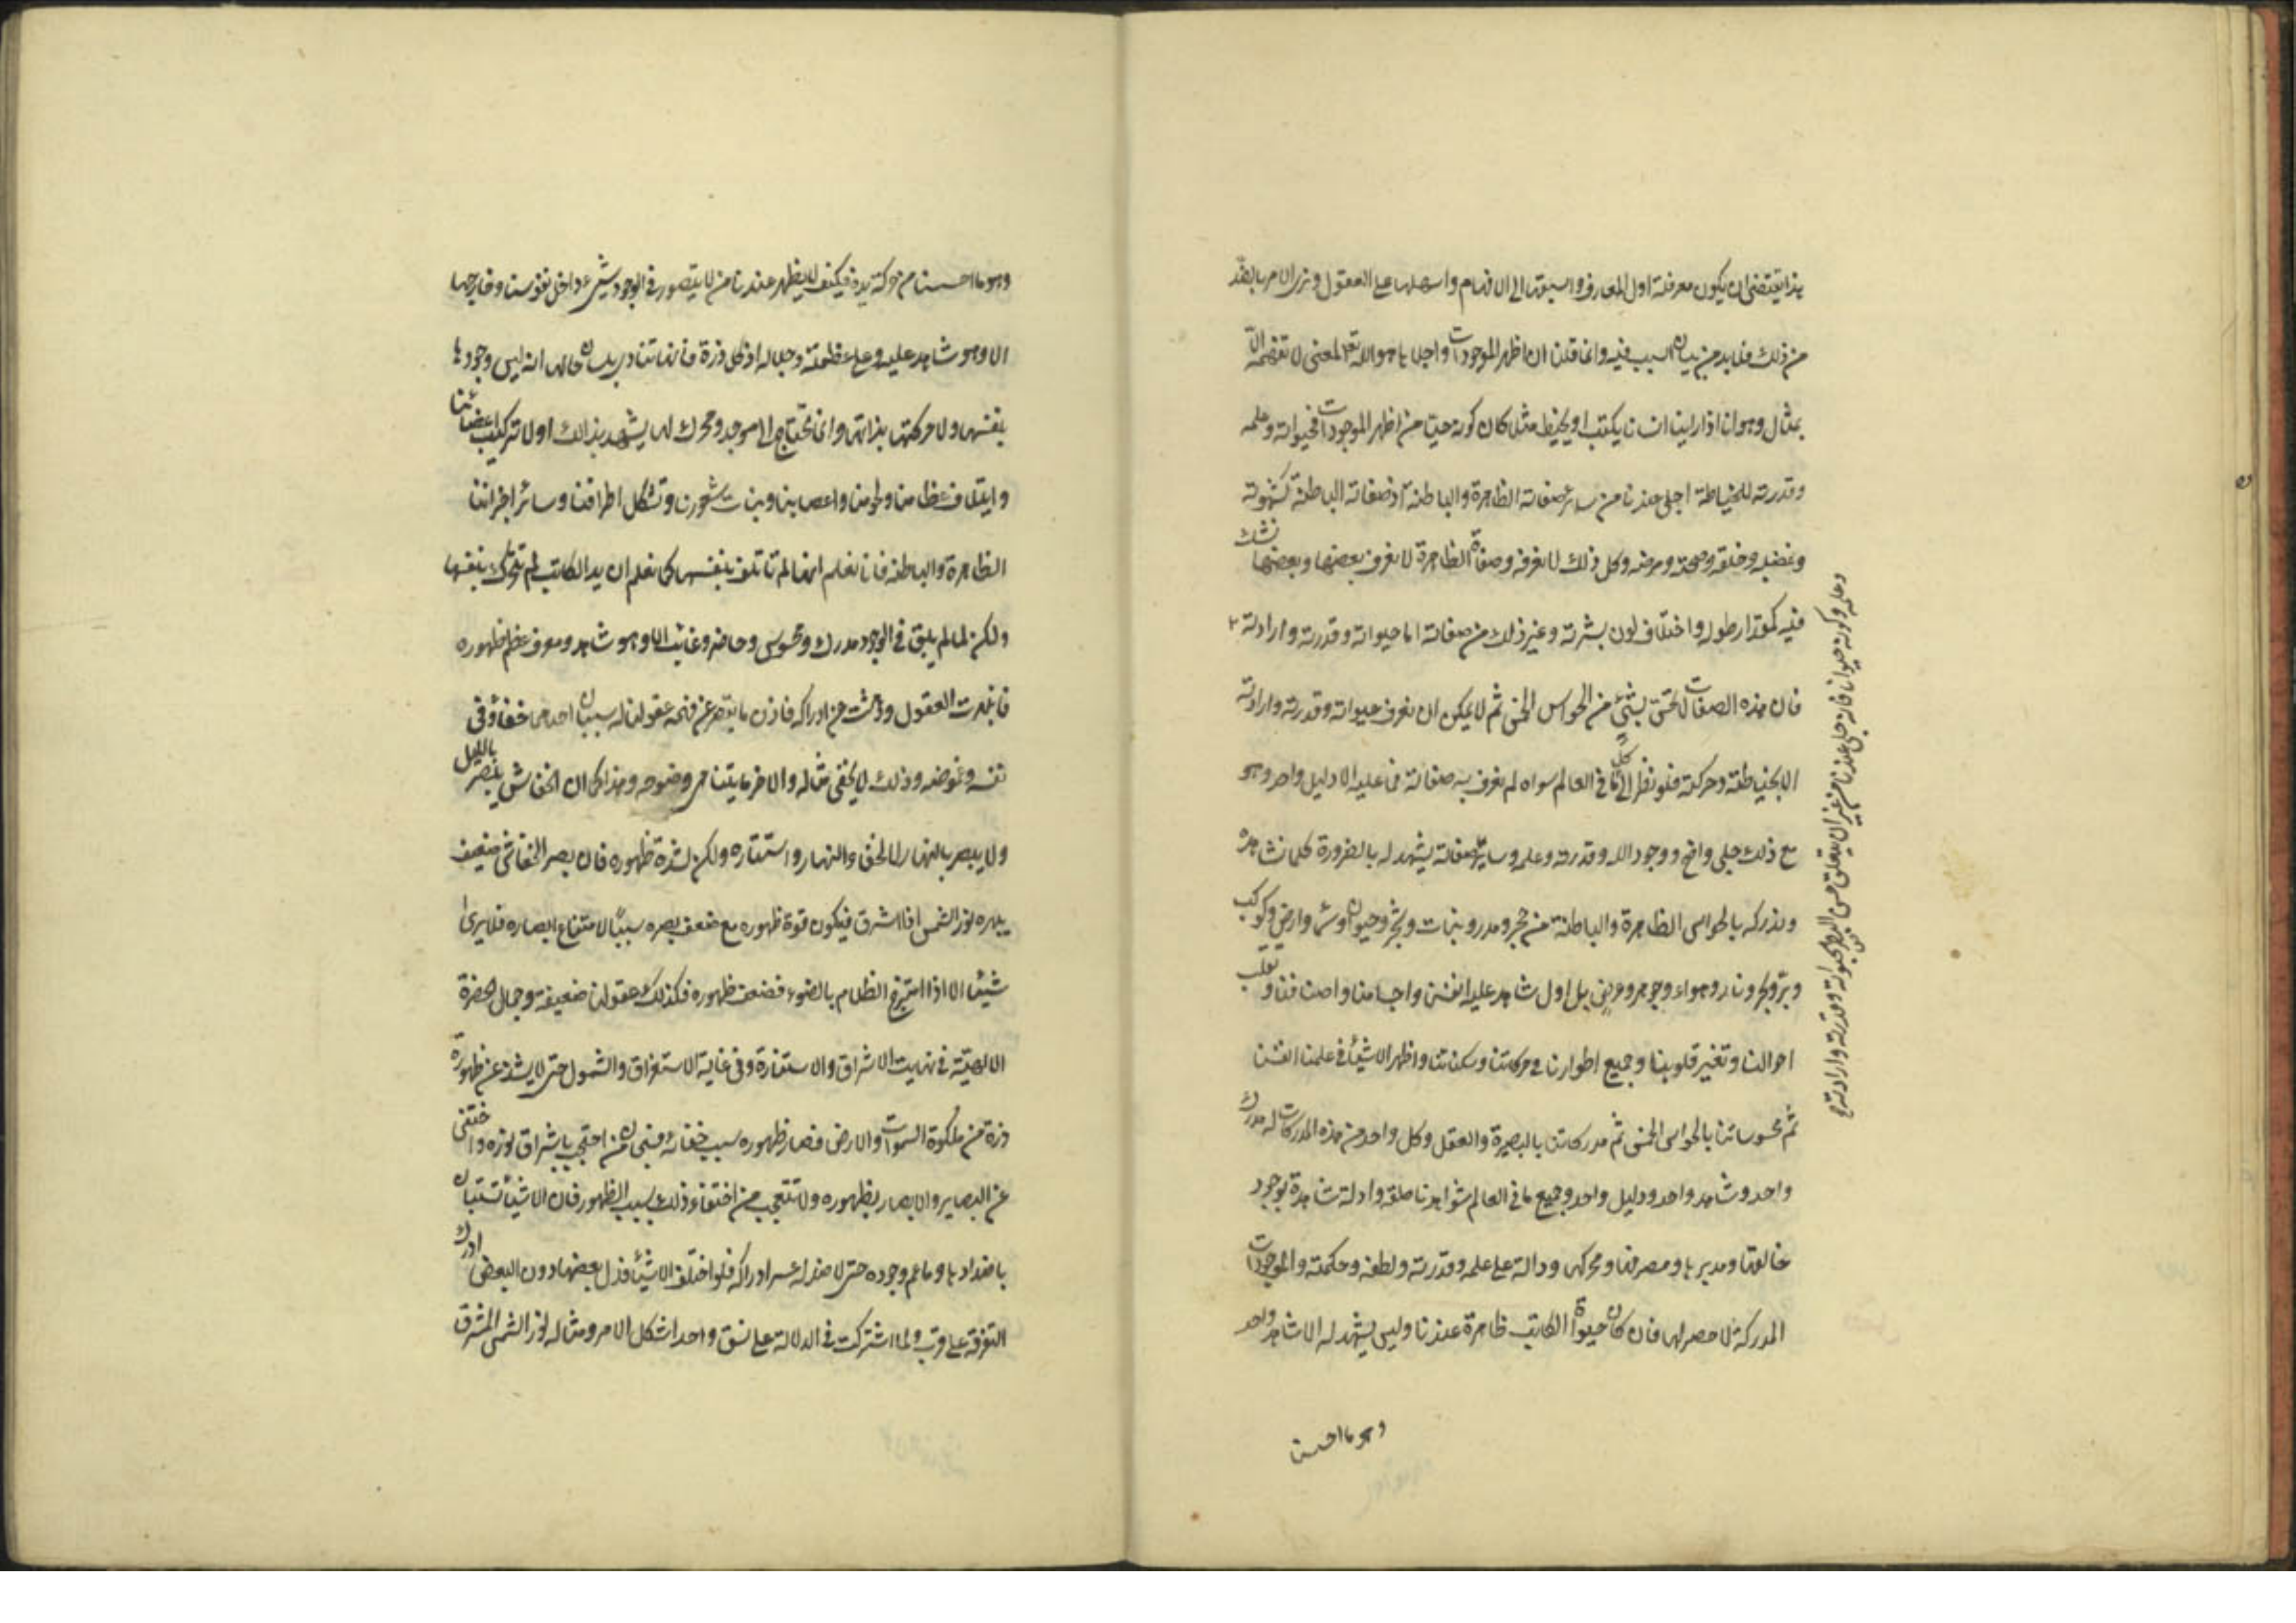 هذا يقتضى ان يكون معرفته اول المعارف واسبقها الى الافهام واسهلها على العقول ونرى الامر بالضد
من ذلك فلا بد من بيان السبب فيه وانما قلنا ان اظهر الموجودات واجلاها هو الله تعالى لمعنى لا تفهمه الا
بمثال وهو انا اذا راينا انسانا يكتب او يخيط مثلا كان كونه حيا من اظهر الموجودات فحيوته وعلمه
وقدرته للخياطة اجلى عندنا من ساير صفاته الظاهرة والباطنة اذ صفاته الباطنة كشهوته
وغضبه وخلقه وصحته ومرضه وكل ذلك لا نعرفه وصفاته الظاهرة لا نعرف بعضها وبعضها نشك
فيه كمقدار طوله واختلاف لون بشرته وغير ذلك من صفاته اما حيوته وقدرته وارادته
وعلمه وكونه حيوانا فانه جلى عندنا من غير ان يتعلق حس البصر بحيوته وقدرته وارادته
فان هذه الصفات لا تحس بشئ من الحواس الخمس ثم لا يمكن ان نعرف حيوته وقدرته وارادته
الا بخياطته وحركته فلو نظرنا الى كل ما فى العالم سواه لم نعرف به صفاته فما عليه الا دليل واحد وهو
مع ذلك جلى واضح ووجود الله وقدرته وعلمه وساير صفاته يشهد له بالضرورة كلما نشاهده
وندركه بالحواس الظاهرة والباطنة من حجر ومدر ونبات وشجر وحيوان وسماء وارض وكوكب
وبر وبحر ونار وهواء وجوهر وعرض بل اول شاهد عليه انفسنا واجسامنا واصنافنا وتقلب
احوالنا وتغير قلوبنا وجميع اطوارنا فى حركاتنا وسكناتنا واظهر الاشياء فى علمنا انفسنا
ثم محسوساتنا بالحواس الخمس ثم مدركاتنا بالبصيرة والعقل وكل واحد من هذه المدركات له مدرك
واحد وشاهد واحد ودليل واحد وجميع ما فى العالم شواهد ناطقة وادلة شاهدة بوجود
خالقها ومدبرها ومصرفها ومحركها ودالة على علمه وقدرته ولطفه وحكمته والموجودات
المدركة لا حصر لها فان كان حيوة الكاتب ظاهرة عندنا وليس يشهد له الا شاهد واحد
وهو ما احسسنا
وهو ما احسسنا من حركة يده فكيف لا يظهر عندنا من لا يتصور فى الوجود شئ داخل نفوسنا وخارجها
الا وهو شاهد عليه وعلى عظمته وجلاله اذ كل ذرة فانها تنادى بلسان حالها انه ليس وجودها
بنفسها ولا حركتها بذاتها وانما تحتاج الى موجد ومحرك لها يشهد بذالك اولا تركيب اعضائنا
وايتلاف عظامنا ولحومنا واعصابنا ونبات شعورنا وتشكل اطرافنا وسائر اجزائنا
الظاهرة والباطنه فانا نعلم انها لم تاتلف بنفسها كما نعلم ان يد الكاتب لم تتحرك بنفسها
ولكن لما لم يبق فى الوجود مدرك ومحسوس وحاضر وغائب الا وهو شاهد ومعرف عظم ظهوره
فانبهرت العقول ودهشت عن ادراكه فاذن ما يقصر عن فهمه عقولنا له سببان احدهما خفاؤه فى
نفسه وغموضه وذلك لا يخفى مثاله والاخر ما يتناهى وضوحه وهذا كما ان الخفاش يبصر بالليل
ولا يبصر بالنهار لا لخفاء النهار واستتاره ولكن لشدة ظهوره فان بصر الخفاش ضعيف
يبهره نور الشمس اذا اشرق فيكون قوة ظهوره مع ضعف بصره سببا لامتناع ابصاره فلا يرى
شيئا الا اذا امتزج الظلام بالضوء فضعف ظهوره فكذلك عقولنا ضعيفة وجمال الحضرة
الالهية فى نهاية الاشراق والاستنارة وفى غاية الاستغراق والشمول حتى لا يشذ عن ظهوره
ذرة من ملكوة السموات والارض فصار ظهوره سبب خفائه فسبحان من احتجب باشراق نوره واختفى
عن البصاير والابصار بظهوره ولا تتعجب من اختفاء ذلك بسبب الظهور فان الاشياء تستبان
باضدادها وما عم وجوده حتى لا ضد له عسر ادراكه فلو اختلف الاشياء فدل بعضها دون البعض ادرك
التفرقة على قرب ولما اشتركت فى الدلالة على نسق واحد اشكل الامر ومثاله نور الشمس المشرق